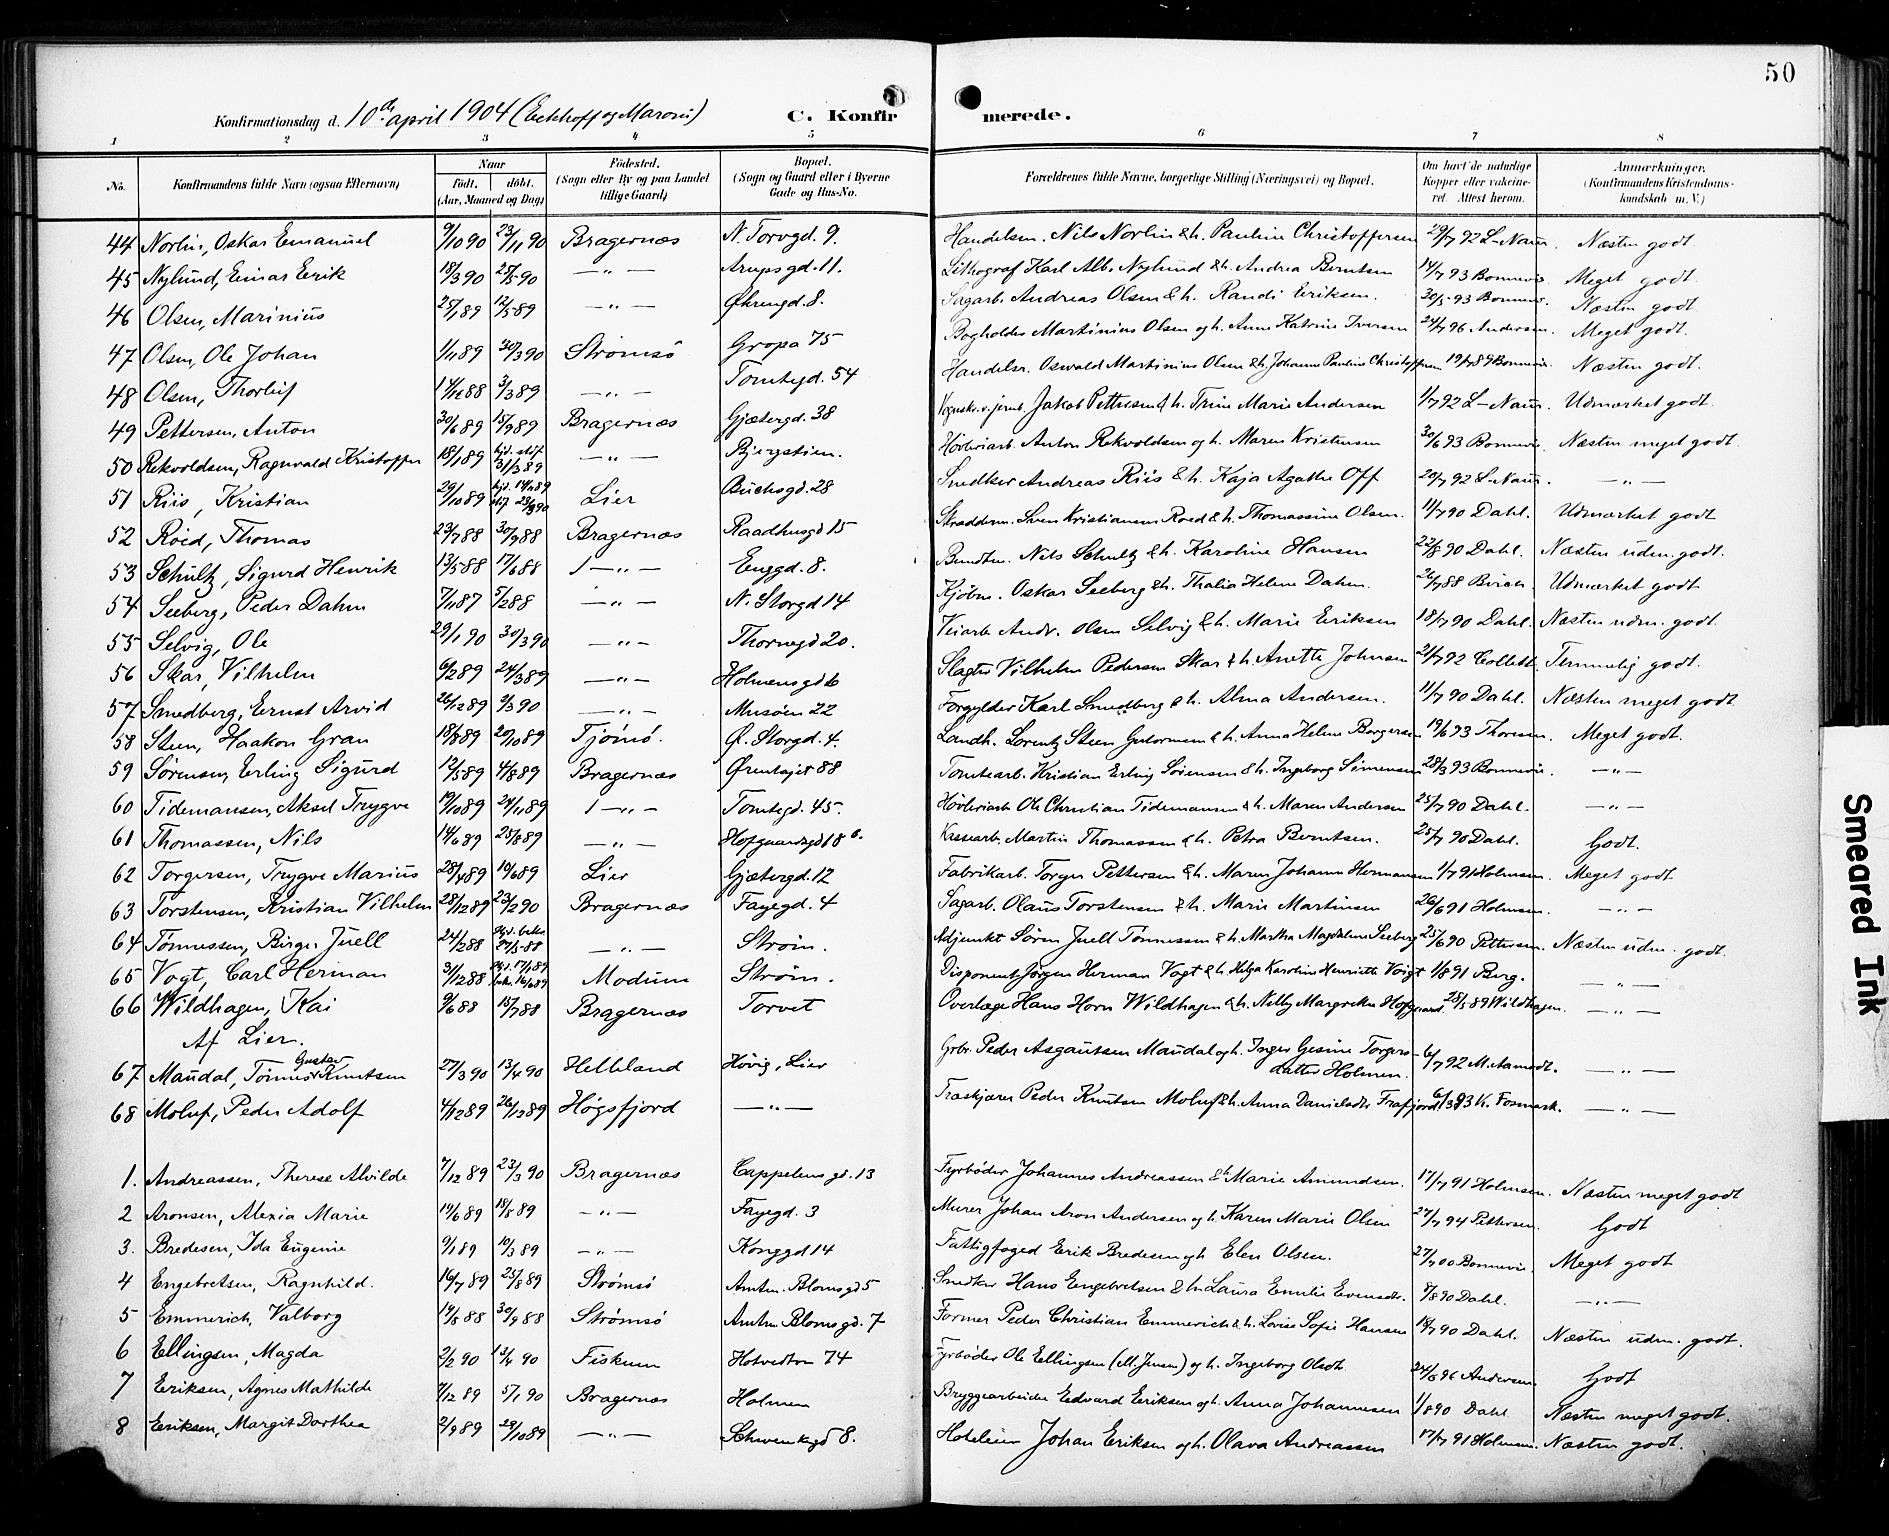 50
Konfirmationsdag d. 10de april 1904 (Eckhoff og Maroni) C. Konfirmerede.
1 2 3 4 5 6 7 8
No. Konfirmandens fulde Navn (ogsaa Efternavn) Naar Födt. döbt. (Aar, Maaned og Dag) Födested. (Sogn eller By og paa Landet tillige Gaard) Bopæl. (Sogn og Gaard eller i Byerne Gade og Hus-No. Forældrenes fulde Navne, borgerlige Stilling (Næringsvei) og Bopæl. Om havt de naturlige Kopper eller vakcineret. Attest herom. Anmærkninger. (Konfirmandens Kristendomskundskab m. V.)
44 Norlin, Oskar Emanuel 9/10 90 23/11 90 Bragernæs N. Torvgd. 9. Handelsm. Nils Norlin & h. Pauline Christoffersen 29/7 92 L-Naur. Næsten godt
45 Nylund, Einar Eerik 18/3 90 25/5 90 —"— Arupsgd. 11. Lithograf Karl Alb. Nylund & h. Andrea Berntsen 14/7 93 Bonnevie Meget godt
46 Olsen, Marinius 25/1 89 12/5 89 —"— Øhrengd. 8. Sagarb. Andreas Olsen & h. Randi Eriksen. 30/5 93 Bonnev. Næsten godt
47 Olsen, Ole Johan 1/11 89 30/3 90 Strømsø Gropa 75 Bogholder Martinius Olsen og h. Anne Katrine Iversen 24/7 96 Andersen. Meget godt.
48 Olsen, Thorleif 14/12 88 3/3 89 —"— Tomtegd. 54 Handelsr. Oswald Martinius Olsen & h. Johanne Pauline Christoffersen 19/7 89 Bonnevie. Næsten godt.
49 Pettersen, Anton 30/6 89 15/9 89 Bragernæs Gjætergd. 38 Vognsk. v. jernb. Jakob Pettersen & h. Trine Marie Andersen 1/7 92 L-Naur. Udmærket godt
50 Rekvoldsen, Ragnvald Kristoffer 18/1 89 hjd. stdf. 31/3 89 —"— Bjergstien. Høvleriarb. Anton Rekvoldsen og h. Maren Kristensen 30/6 93 Bonnevie. Næsten meget godt
51 Riis, Kristian 29/10 89 hjd. 14/12 89 stdf 23/3 90 Lier Buchsgd. 28 Snedker Andreas Riis & h. Kaja Agathe Off 20/7 92 L-Naur. —"—
52 Roed, Thomas 23/7 88 30/9 88 Bragernæs Raadhusgd 15 Skræderm. Sven Kristiansen Roed & h. Thomassine Olsen. 11/7 90 Dahl. Udmærket godt
53 Schultz, Sigurd Henrik 13/5 88 17/6 88 —"— Enggd. 8. Bundtm. Nils Schultz & h. Karoline Hansen 22/8 90 Dahl. Næsten udm. godt.
54 Seeberg, Peder Dahm 7/11 87 5/2 88 —"— N. Storgd 14 Kjøbm. Oskar Seeberg & h. Thalia Helene Dahm. 26/7 88 Birch. Udmærket godt
55 Selvig, Ole 29/1 90 30/3 90 —"— Thornegd 20. Veiarb. Andr. Olsen Selvig & h. Marie Eriksen 18/7 90 Dahl. Næsten udm. godt.
56 Skar, Vilhelm 6/2 89 24/3 89 —"— Holmensgd 6 Slagter Vilhelm Pedersen Skar & h. Anette Johnsen 21/7 92 Collett. Temmelig godt.
57 Smedberg, Ernst Arvid 26/12 89 2/3 90 —"— Musøen 22 Forgylder Karl Smedberg & h. Alma Andersen. 11/7 90 Dahl. Næsten meget godt
58 Steen, Haakon Gran 18/8 89 20/10 89 Tjømø. Ø. Storgd. 4. Landh. Lorentz Steen Gulormsen & h. Anna Helene Borgersen 19/6 93 Thoresen. Meget godt.
59 Sørensen, Erling Sigurd 12/5 89 4/8 89 Bragernæs Ørentajet 88 Tomtearb. Kristian Erling Sørensen & h. Ingeborg Simensen 28/3 93 Bonnevie. —"—
60 Tidemansen, Aksel Trygve 19/10 89 24/11 89 —"— Tomtegd. 45. Høvleriarb Ole Christian Tidemansen & h. Maren Andersen 25/7 90 Dahl. —"—
61 Thomassen, Nils 14/6 89 25/8 89 —"— Hofgaardsgd 18 b. Kassearb. Martin Thomassen & h. Petra Berntsen. 25/7 90 Dahl. Godt.
62 Torgersen, Trygve Marius 28/4 89 10/6 89 Lier Gjætergd. 12 Fabrikarb. Torger Pettersen & h. Maren Johanne Hermansen 1/7 91 Holmsen. Meget godt
63 Torstensen, Kristian Vilhelm 28/12 89 23/2 90 Bragernæs Fayegd. 4 Sagarb. Olaus Torstensen & h. Marie Martinsen 26/6 91 Holmsen. —"—
64 Tønnessen, Birger Juell 24/2 88 hjd. bekr. 27/5 88 —"— Strøm. Adjunkt Sören Juell Tönnessen & h. Martha Magdalene Seeberg 25/6 90 Pettersen. Næsten udm. godt.
65 Vogt, Carl Herman 31/12 88 hjd. 17/1 89 bekr. 16/6 89 Modum Strøm. Disponent Jørgen Herman Vogt & h. Helga Karoline Henriette Voigt 1/8 91 Berg. —"—
66 Wildhagen, Kai 9/6 88 15/7 88 Bragernæs Torvet Overlæge Hans Horn Wildhagen & h. Nelly Margrethe Hofgaard 25/5 89 Wildhagen. —"—
Af Lier.
67 Maudal, Tönnes Gustav Knutsen 27/3 90 13/4 90 Helleland Høvig, Lier Grbr. Peder Asgautsen Maudal og h. Inger Gesine Torgersdatter Holmen. 6/7 92 M. Aamodt. —"—
68 Moluf, Peder Adolf 4/12 89 26/12 89 Högsfjord —"— Træskjærer Peder Knutsen Moluf & h. Anna Danielsdtr Frafjord 6/3 93 K. Fosmark. —"—
1. Andreassen, Therese Alvilde 7/12 89 23/3 90 Bragernæs Cappelens gd. 13 Fyrbøder Johannes Andreassen & h. Marie Amundsen. 17/7 91 Holmsen. Næsten meget godt
2 Aronsen, Alexia Marie 19/6 89 18/8 89 —"— Fayegd. 3 Murer Johan Aron Andersen og h. Karen Marie Olsen 27/7 94 Pettersen. Godt
3. Bredesen, Ida Eugenie 9/1 89 10/3 89 —"— Konggd 14 Fattigfoged Erik Bredesen og h. Elen Olsen. 27/7 00 Bonnevie. Meget godt
4 Engebretsen, Ragnhild. 16/7 89 25/8 89 Strømsø Amtm. Blomsgd 5 Snedker Hans Engebretsen & h. Laura Emilie Evensdtr. 8/8 90 Dahl. —"—
5 Emmerich, Valborg 14/8 88 30/9 88 Strømsø Amtm. Bloms gd. 7 Former Peder Christian Emmerich & h. Lovise Sofie Hansen 18/7 90 Dahl. Næsten udm. godt.
6 Ellingsen, Magda 2/2 90 13/4 90 Fiskum Hotvedtvn 74 Fyrbøder Ole Ellingsen (M. Jensen) og h. Ingeborg Olsdtr. 24/6 96 Andersen. Godt
7 Eriksen, Agnes Mathilde 7/12 89 5/1 90 Bragernæs Holmen Bryggearbeider Edvard Eriksen og h. Anna Johannesen 1/8 90 Dahl Næsten meget godt.
8 Eriksen, Margit Dorthea 2/9 89 29/10 89 —"— Schwenkegd 8. Hoteleier Johan Eriksen og h. Olava Andreassen 17/7 91 Holmsen. Næsten godt.
Smeared Ink